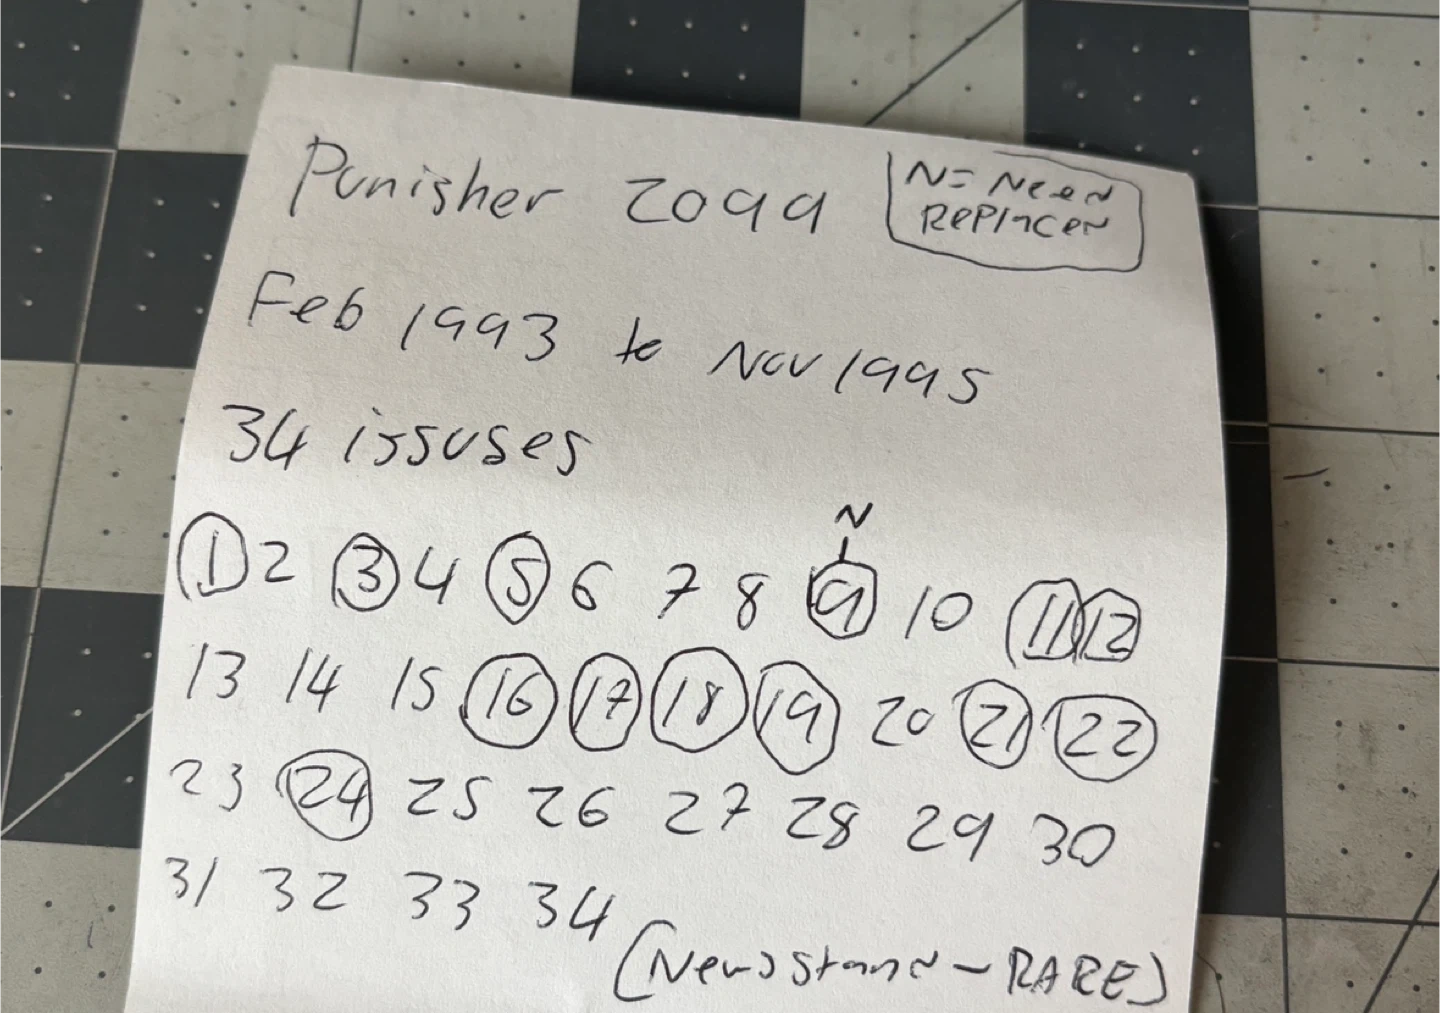 Punisher 2099
N= Neen
Replacen
Feb 1993 to Nov 1995
34 issuses
N
1 2 3 4 5 6 7 8 9 10 11 12
13 14 15 16 17 18 19 20 21 22
23 24 25 26 27 28 29 30
31 32 33 34
(Newsstand - RARE)